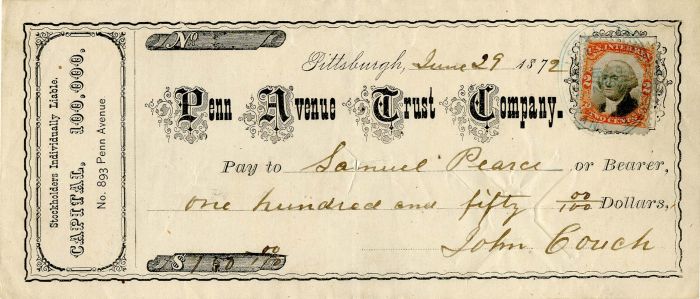 Stockholders Individually Liable.
CAPITAL, 100,000.
No. 893 Penn Avenue
No.
Pittsburgh, June 29 1872
Penn Avenue Trust Company.
Pay to Samuel Pearce or Bearer,
one hundred and fifty 00/100 Dollars,
John Couch
$ 150 00